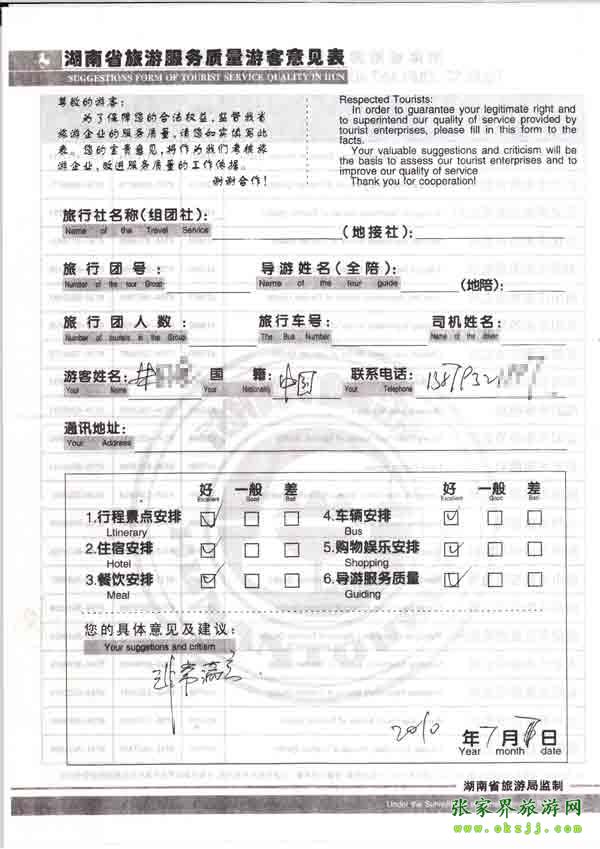 湖南省旅游服务质量游客意见表
SUGGESTIONS FORM OF TOURIST SERVICE QUALITY IN HUN
尊敬的游客:
为了保障您的合法权益,监督我省
旅游企业的服务质量,请您如实填写此
表。您的宝贵意见,将作为我们考核旅
游企业,改进服务质量的工作依据。
谢谢合作!
Respected Tourists:
In order to guarantee your legitimate right and
to superintend our quality of service provided by
tourist enterprises, please fill in this form to the
facts.
Your valuable suggestions and criticism will be
the basis to assess our tourist enterprises and to
improve our quality of service
Thank you for cooperation!
旅行社名称(组团社): (地接社):
Name of the Travel Service
旅行团号: 导游姓名(全陪): (地陪):
Number of the tour Group Name of the tour guide
旅行团人数: 旅行车号: 司机姓名:
Number of tourists in the Group The Bus Number Name of the driver
游客姓名: 国籍: 中国 联系电话:
Your Name Your Nationality Your Telephone
通讯地址:
Your Address
好 一般 差 好 一般 差
Excellent Good Bad Excellent Good Bad
1.行程景点安排 4.车辆安排
Ltinerary Bus
2.住宿安排 5.购物娱乐安排
Hotel Shopping
3.餐饮安排 6.导游服务质量
Meal Guiding
您的具体意见及建议:
Your suggetions and critism
非常满意.
2010 年 7 月 日
Year month date
湖南省旅游局监制
Under the
张家界旅游网
www.okzjj.com